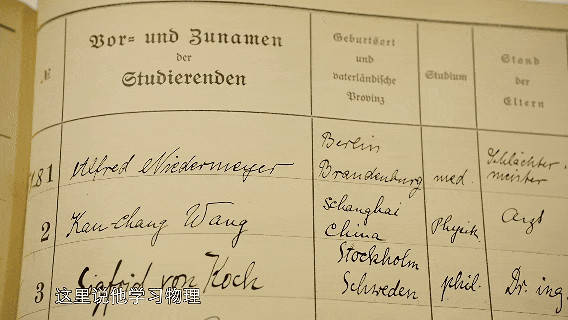 №
Vor= und Zunamen
der
Studierenden
Geburtsort
und
vaterländische
Provinz
Studium
Stand
der
Eltern
181 Alfred Niedermeyer Berlin Brandenburg med. Schlächter- meister
2 Kan-Chang Wang Schanghai China Physik. Arzt
3 Sigfrid von Koch Stockholm Schweden phil. Dr. ing.
这里说他学习物理